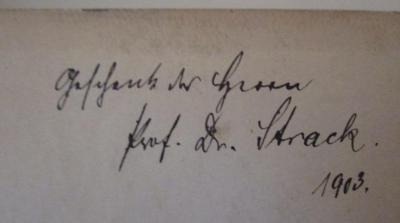 Geschenk des Herrn
Prof. Dr. Strack.
1903.